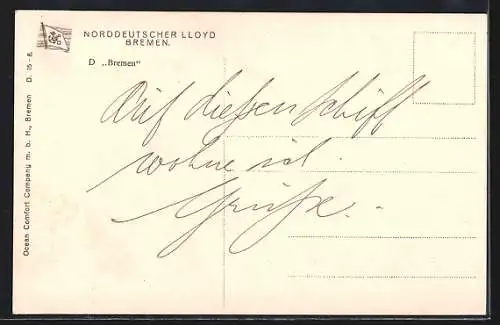 NORDDEUTSCHER LLOYD
BREMEN.
D „Bremen"
Auf diesen Schiff
wohne ich.
Grüße.
Ocean Comfort Company m. b. H., Bremen D. 15 - 8.